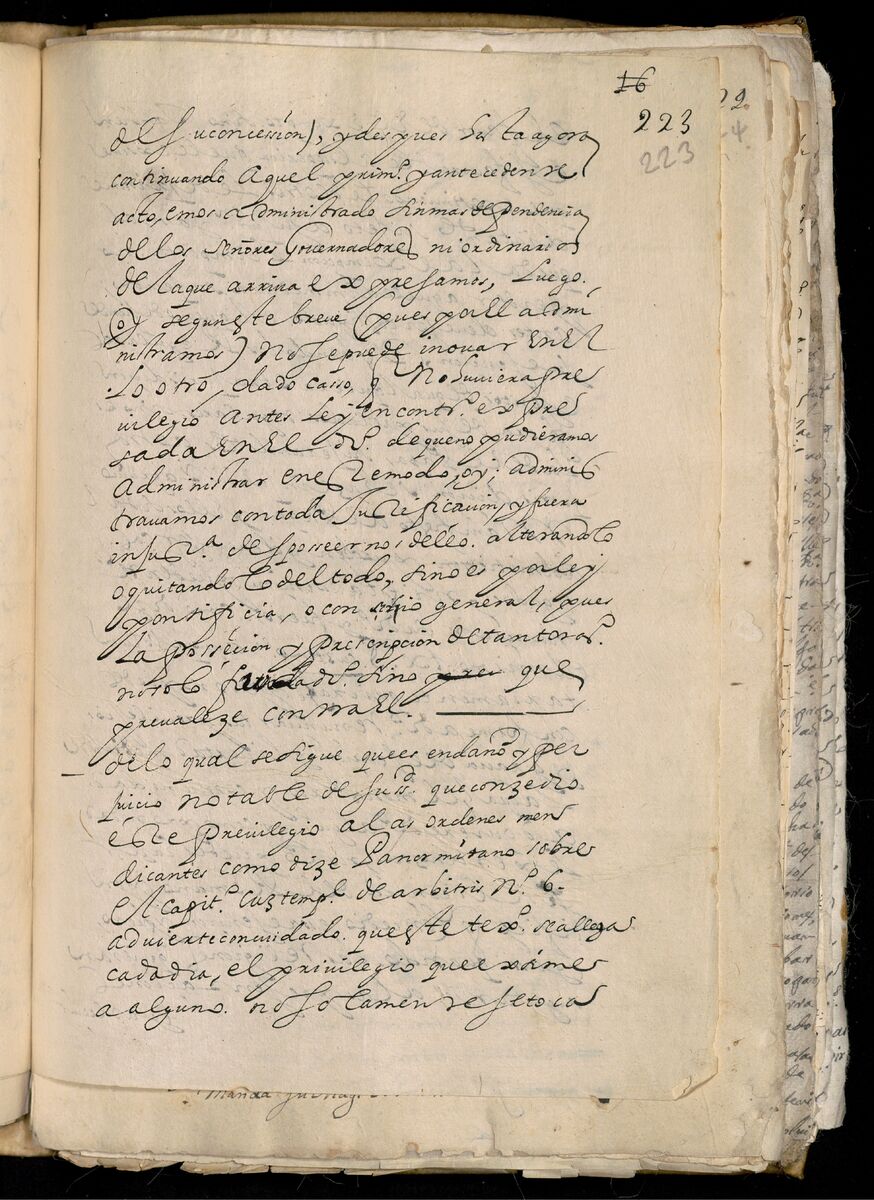 16
223
223
de su concession), y despues hasta agora
continuando aquel prim.º y antecedente
acto, emos administrado sin mas dependencia
de los señores Governadores ni ordinarios
de la que arriva expresamos, Luego.
oy segun este breve (pues por el admi
nistramos) no se puede inovar en el
Lo otro, dado casso, q No huviera pre
vilegio antes Ley en contr.º expre
sada en el dr.º de que no pudieramos
administrar en este modo, oy; adminis
travamos con toda Justificacion, y fuera
injust.ª desposseernos dello. alterandolo
o quitandolo del todo, sino es por ley
pontificia, o con general, pues
La possecion y prescripcion de tantos as.
no solo funda dr.º sino que
prevaleze contra el.
de lo qual se sigue que es en daño y per
juicio notable de su sd. que conzedio
este Previlegio a las ordenes men
dicantes como dize Panormitano sobre
el capit.º Cum templ. de arbitris N.º 6-
advierte con cuidado. que este tex.º se allega
cada dia, el privilegio que exsime
a alguno. no solamente se le toca